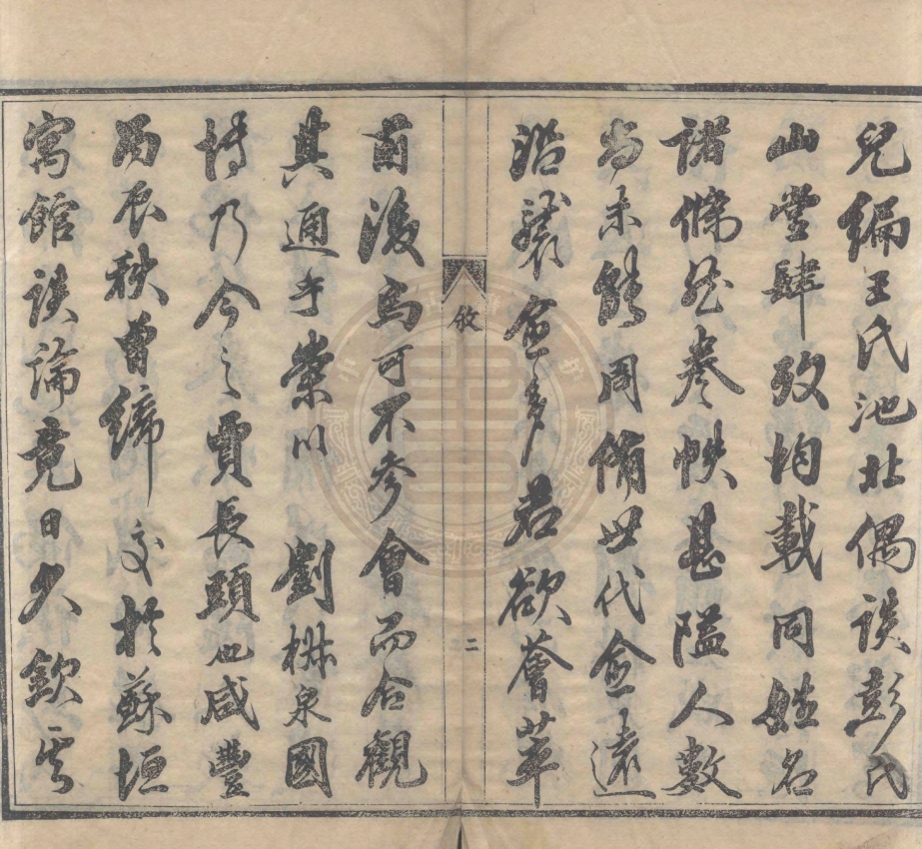 兒編王氏池北偶談彭氏
山堂肆攷均載同姓名
諸條然卷帙甚隘人數
尚未能周備世代愈遠
沿襲愈多若欲薈萃
前後烏可不參會而合觀
其通乎紫川劉楙泉國
博乃今之賈長頭也咸豐
丙辰秋曾締交於蘇垣
寓館談論竟日久欽其
攷
二